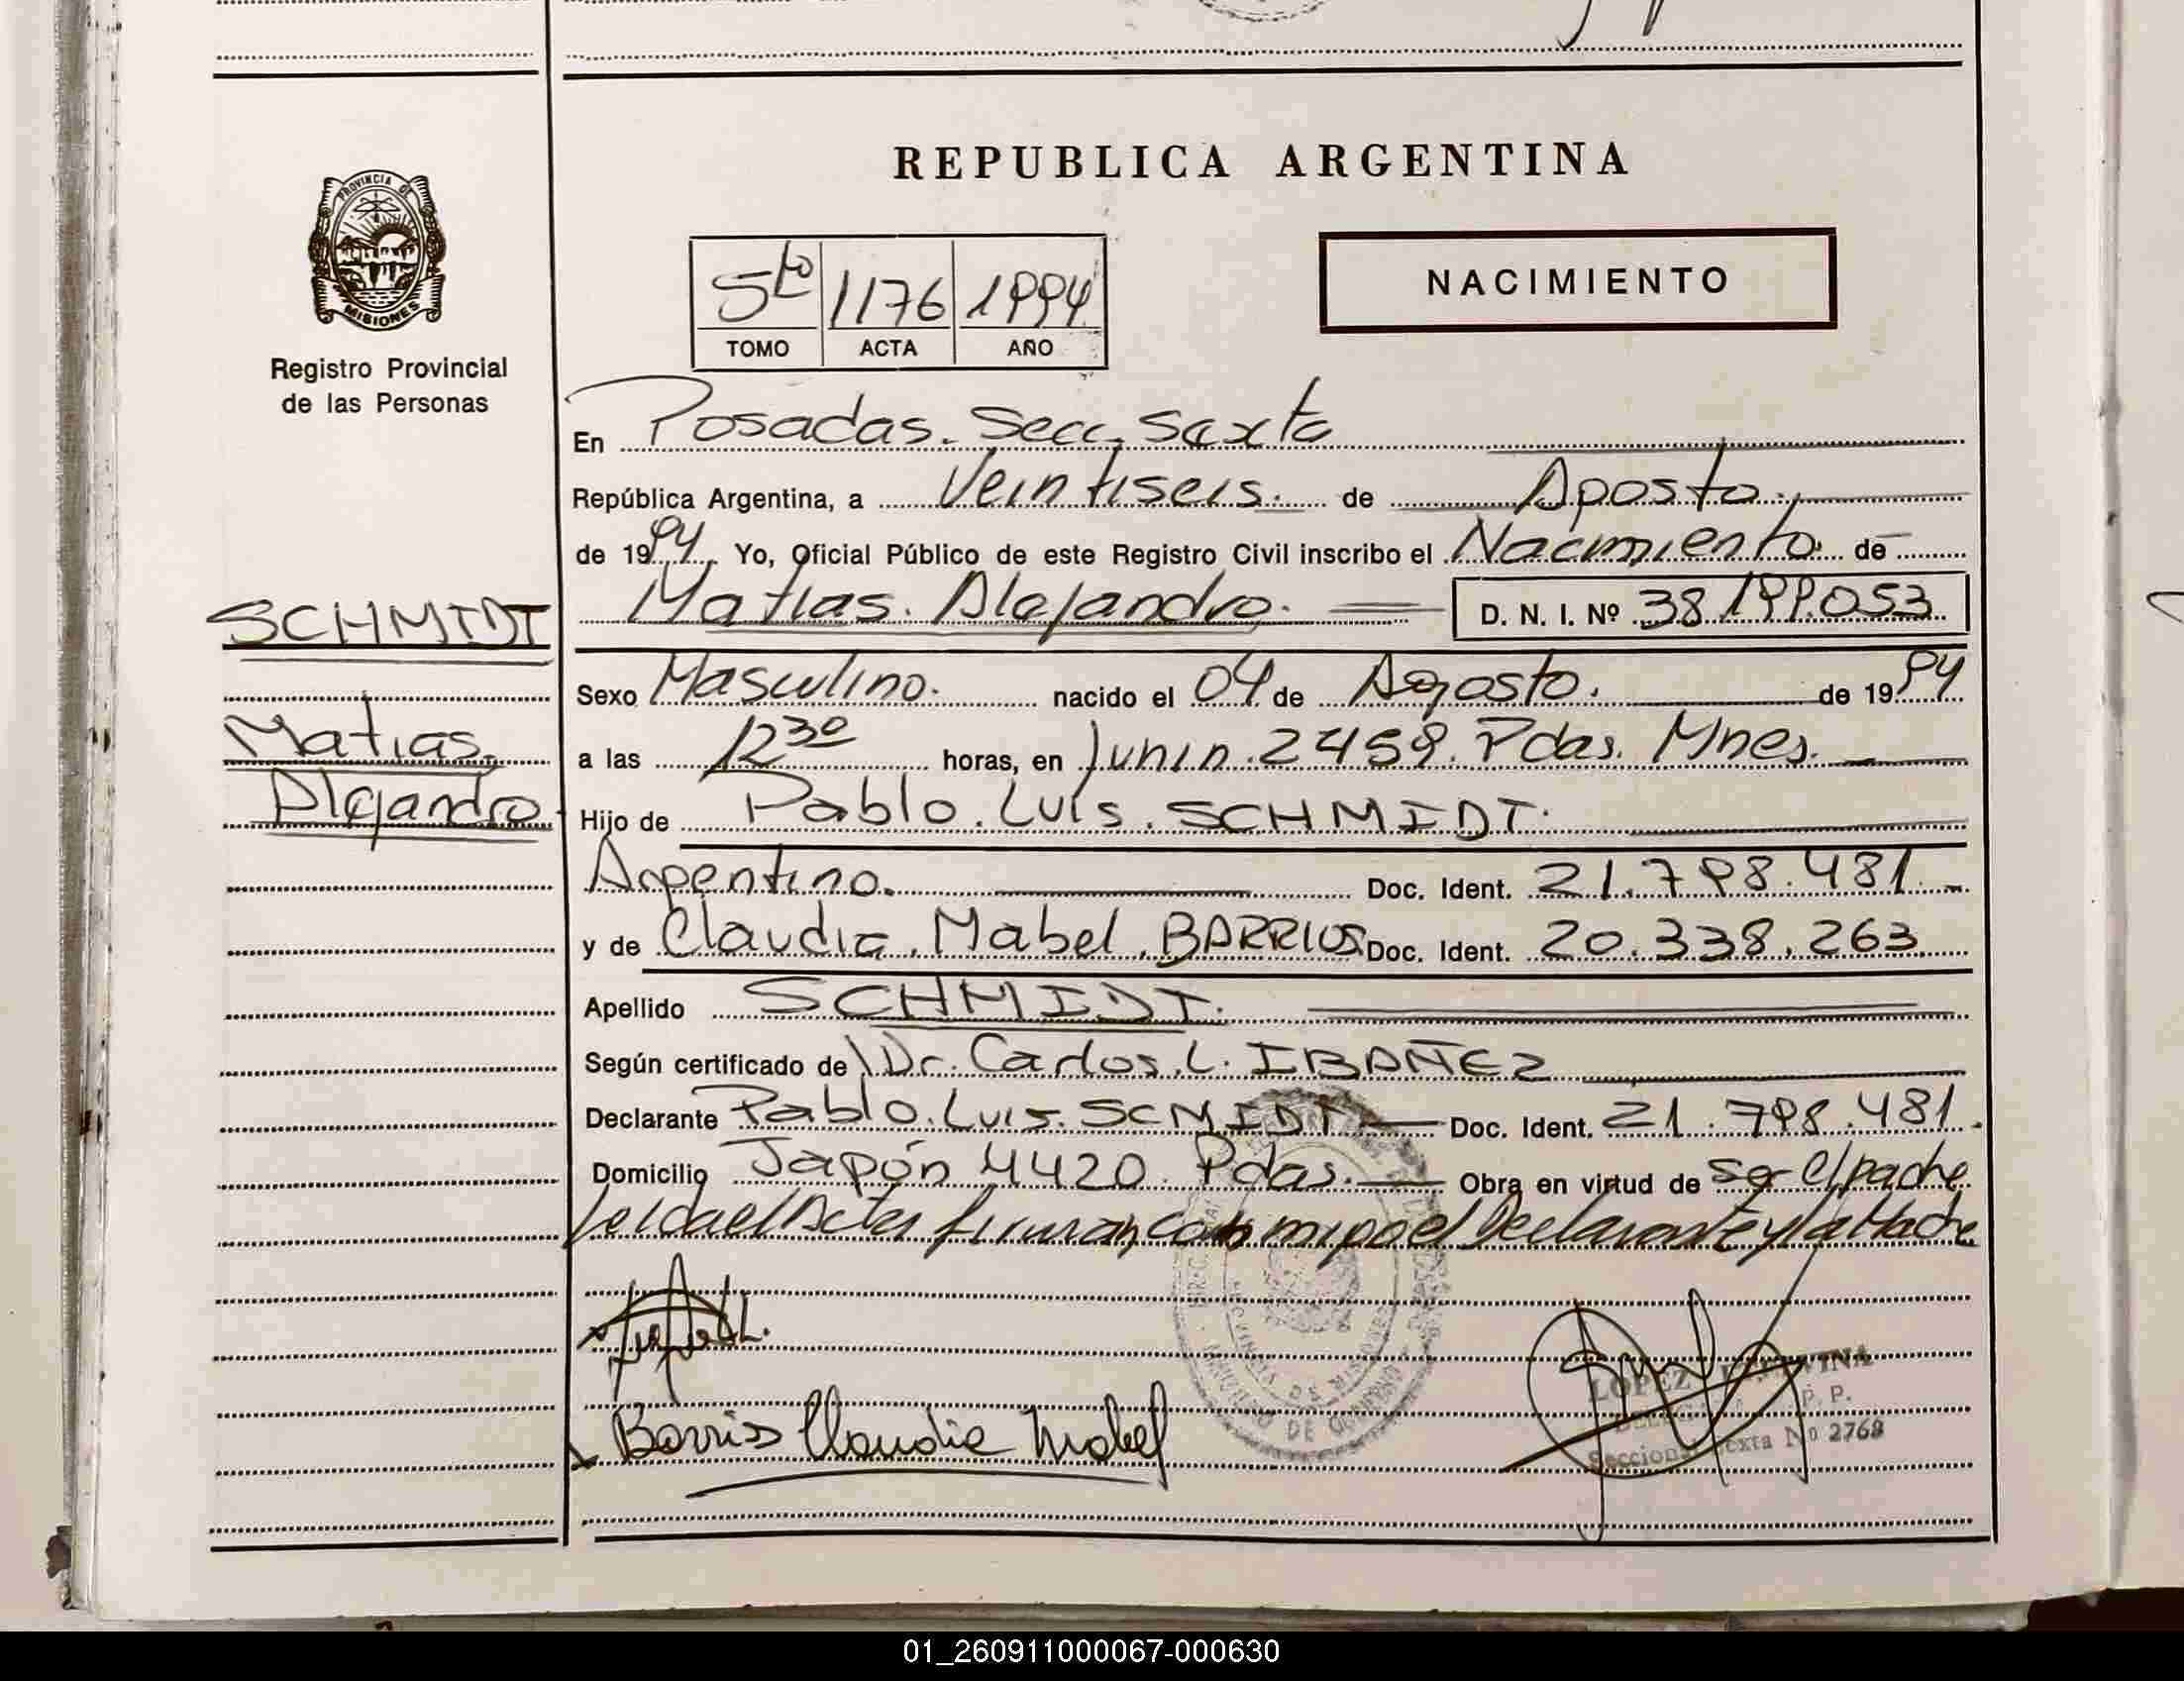 REPUBLICA ARGENTINA
PROVINCIA DE
MISIONES
Registro Provincial
de las Personas
5to 1176 1994
TOMO ACTA AÑO
NACIMIENTO
En Posadas. Secc. Sexta
República Argentina, a Veintiseis. de Agosto.
de 1994 Yo, Oficial Público de este Registro Civil inscribo el Nacimiento de
Matias. Alejandro. D. N. I. Nº 38.199.053.
SCHMIDT
Matias.
Alejandro
Sexo Masculino. nacido el 04 de Agosto. de 1994
a las 12 30 horas, en Junin. 2459. Pdas. Mnes.
Hijo de Pablo. Luis. SCHMIDT.
Argentino. Doc. Ident. 21.798.481.
y de Claudia. Mabel. BARRIOS Doc. Ident. 20.338.263
Apellido SCHMIDT.
Según certificado de Dr. Carlos. L. IBAÑEZ
Declarante Pablo. Luis. SCMIDT Doc. Ident. 21.798.481.
Domicilio Japón 4420. Pdas. Obra en virtud de ser el padre
leida el Acta firman con migo el Declarante y la Madre
Barrios Claudia Mabel
LOPEZ
P. P.
Seccional Sexta Nº 2768
PROVINCIA DE MISIONES
MINISTERIO DE GOBIERNO
01_260911000067-000630